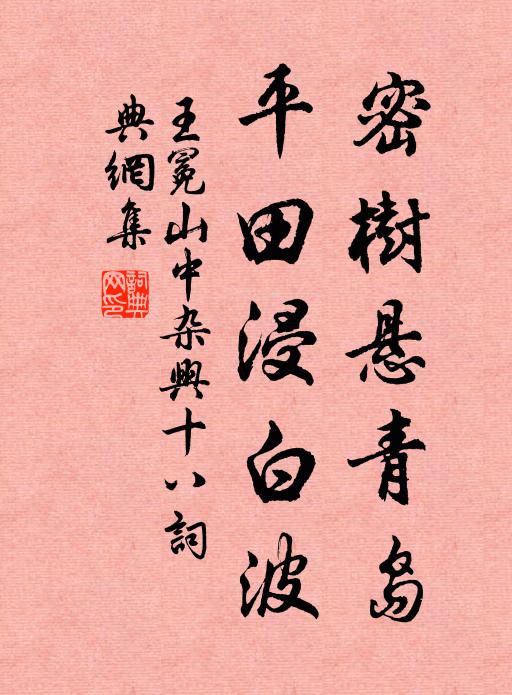 密樹悬青岛
平田浸白波
王冕山中杂興十八詞
典網集
詞典
网印